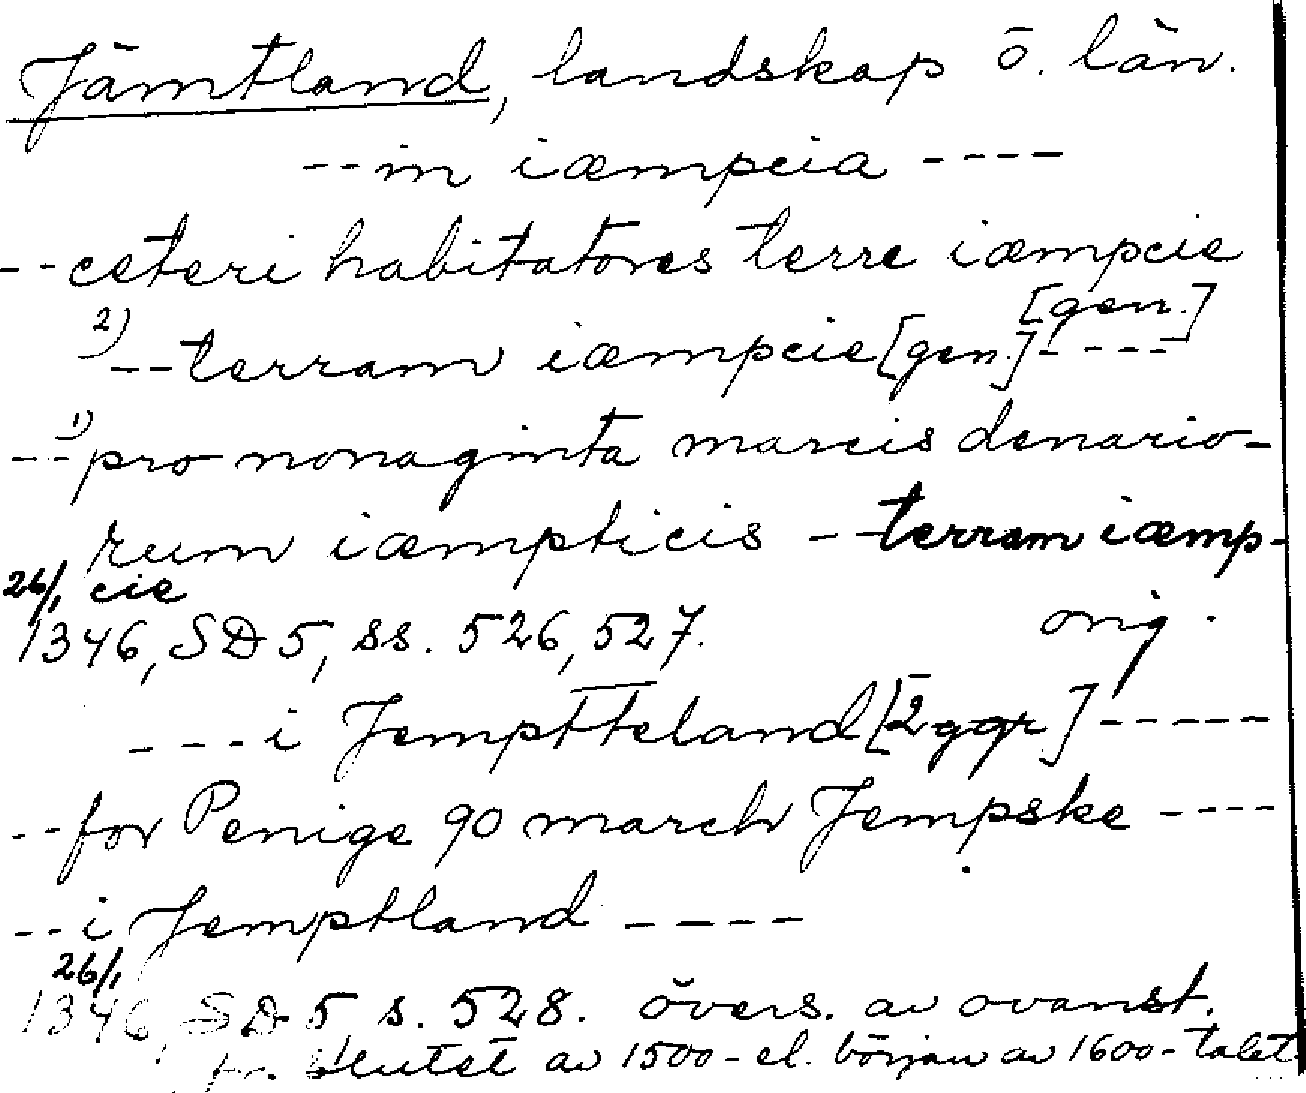 Jämtland, landskap o. län.
--in iæmpcia ----
--ceteri habitatores terre iæmpcie
[gen.]
2) --terram iæmpcie [gen.] ----
--1) pro nonaginta marcis denario-
rum iæmpticis -- terram iæmp-
26/1 cie
1346, SD 5, ss. 526, 527. orig.
----i Jemptteland [2 ggr] -----
--for Penige 90 march Jempske ----
--i Jemptland ----
26/1
1346, SD 5 s. 528. övers. av ovanst.
fr. slutet av 1500- el. början av 1600-talet.